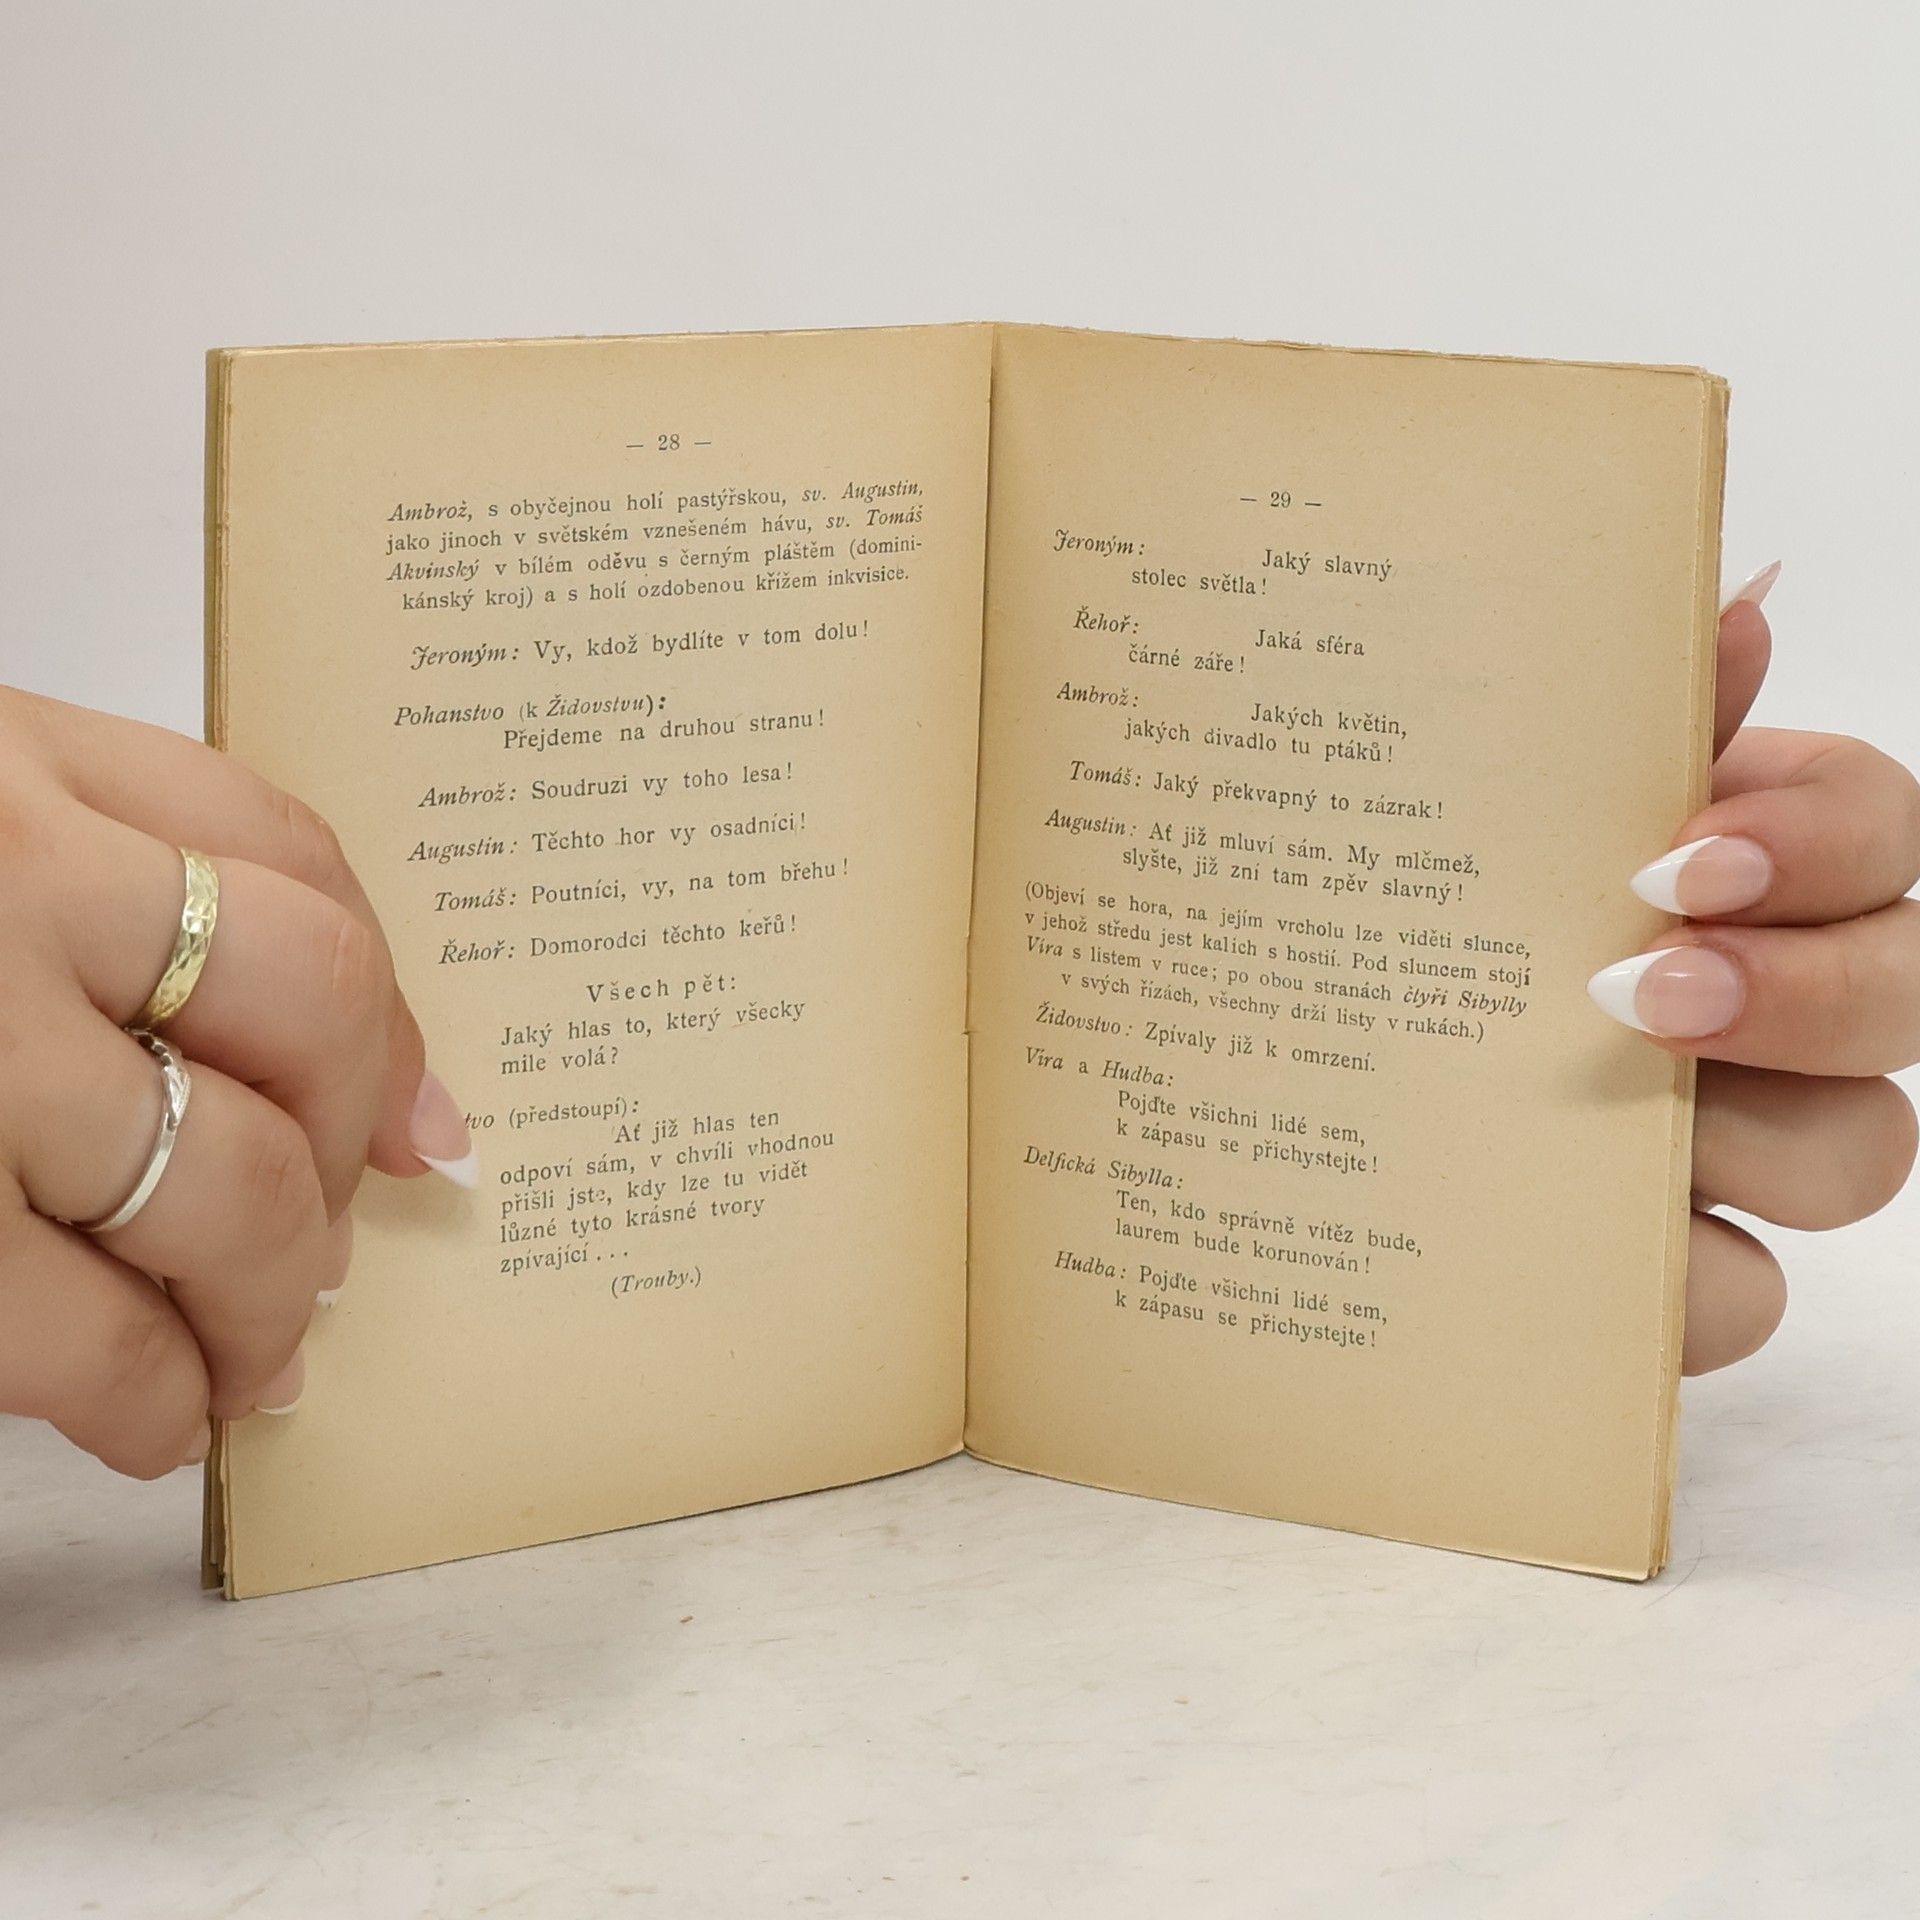 — 28 —
Ambrož, s obyčejnou holí pastýřskou, sv. Augustin,
jako jinoch v světském vznešeném hávu, sv. Tomáš
Akvinský v bílém oděvu s černým pláštěm (domini-
kánský kroj) a s holí ozdobenou křížem inkvisice.
Jeroným: Vy, kdož bydlíte v tom dolu!
Pohanstvo (k Židovstvu):
Přejdeme na druhou stranu!
Ambrož: Soudruzi vy toho lesa!
Augustin: Těchto hor vy osadníci!
Tomáš: Poutníci, vy, na tom břehu!
Řehoř: Domorodci těchto keřů!
Všech pět:
Jaký hlas to, který všecky
mile volá?
tvo (předstoupí):
Ať již hlas ten
odpoví sám, v chvíli vhodnou
přišli jste, kdy lze tu vidět
lůzné tyto krásné tvory
zpívající . . .
(Trouby.)
— 29 —
Jeroným:
Jaký slavný
stolec světla!
Řehoř:
Jaká sféra
čárné záře!
Ambrož:
Jakých květin,
jakých divadlo tu ptáků!
Tomáš: Jaký překvapný to zázrak!
Augustin: Ať již mluví sám. My mlčmež,
slyšte, již zní tam zpěv slavný!
(Objeví se hora, na jejím vrcholu lze viděti slunce,
v jehož středu jest kalich s hostií. Pod sluncem stojí
Víra s listem v ruce; po obou stranách čtyři Sibylly
v svých řízách, všechny drží listy v rukách.)
Židovstvo: Zpívaly již k omrzení.
Víra a Hudba:
Pojďte všichni lidé sem,
k zápasu se přichystejte!
Delfická Sibylla:
Ten, kdo správně vítěz bude,
laurem bude korunován!
Hudba: Pojďte všichni lidé sem,
k zápasu se přichystejte!